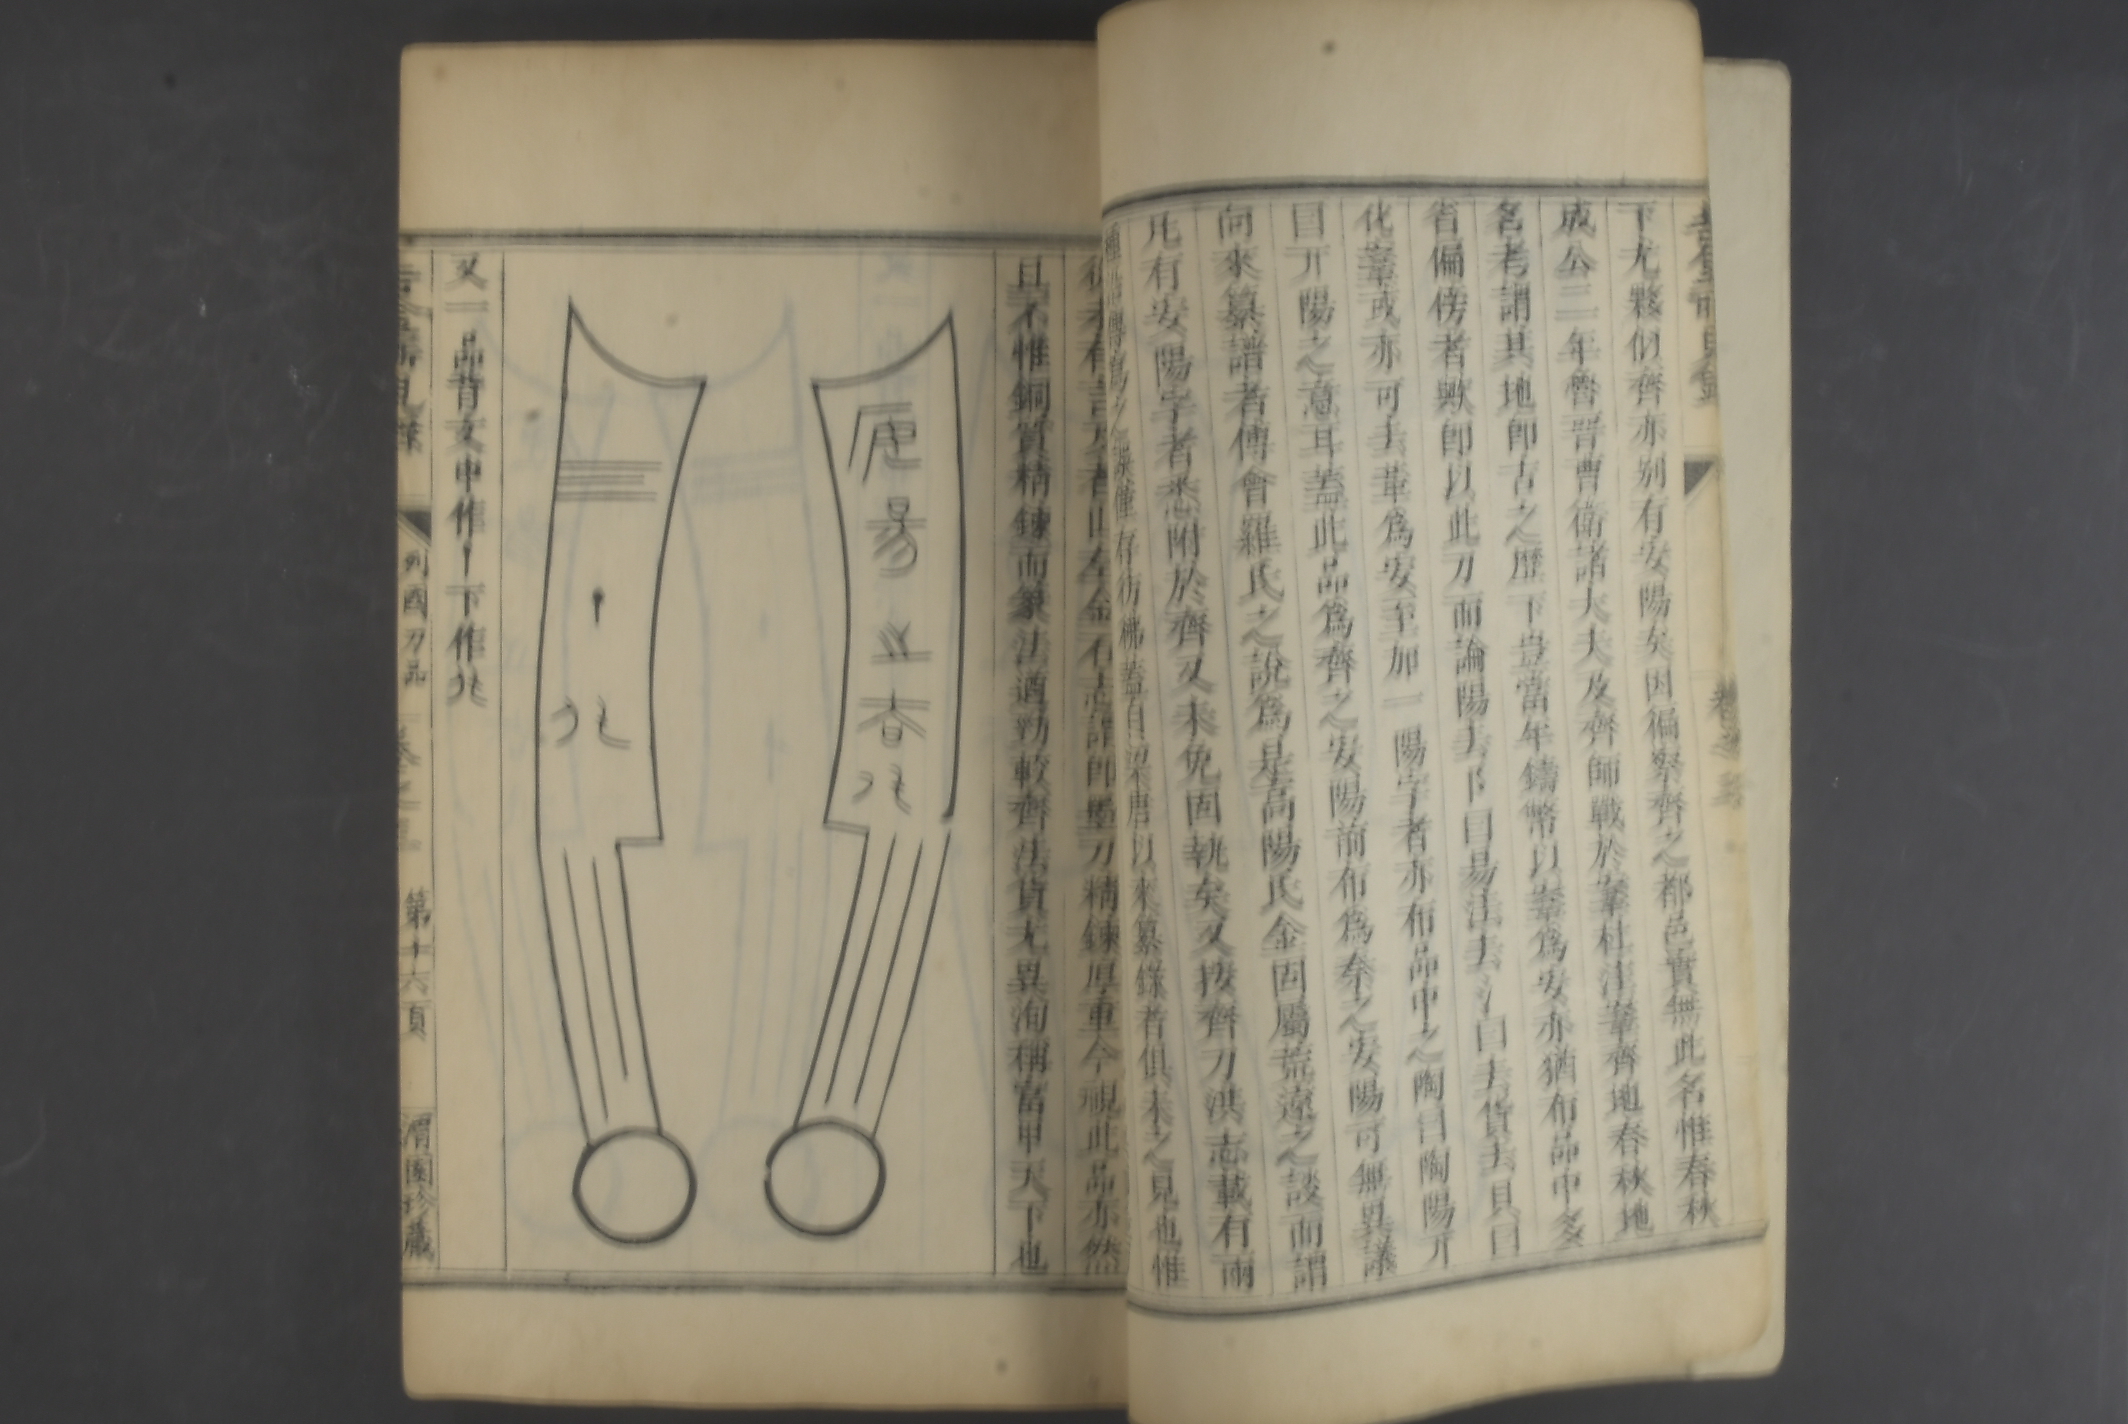 下尤夥似齊亦別有安陽矣因徧察齊之都邑實無此名惟春秋
成公二年魯晉曹衛諸大夫及齊師戰於鞌杜注鞌齊地春秋地
名考謂其地卽古之歷下豈當年鑄幣以鞌爲安亦猶布品中多
省偏傍者歟卽以此刀而論陽去阝曰昜法去氵曰去貨去貝曰
化鞌或亦可去革爲安至加一陽字者亦布品中之陶曰陶陽亓
曰亓陽之意耳蓋此品爲齊之安陽前布爲秦之安陽可無異議
向來纂譜者傅會羅氏之說爲是高陽氏金固屬荒遠之談而謂
凡有安陽字者悉附於齊又未免固執矣又按齊刀洪志載有兩
存彷彿蓋自梁唐以來纂錄者俱未之見也惟
金石志謂卽墨刀精鍊厚重今視此品亦然
且不惟銅質精鍊而篆法遒勁較齊法貨尤異洵稱富甲天下也
又一品背文中作 下作
列國刀品
第十六頁
渭園珍藏